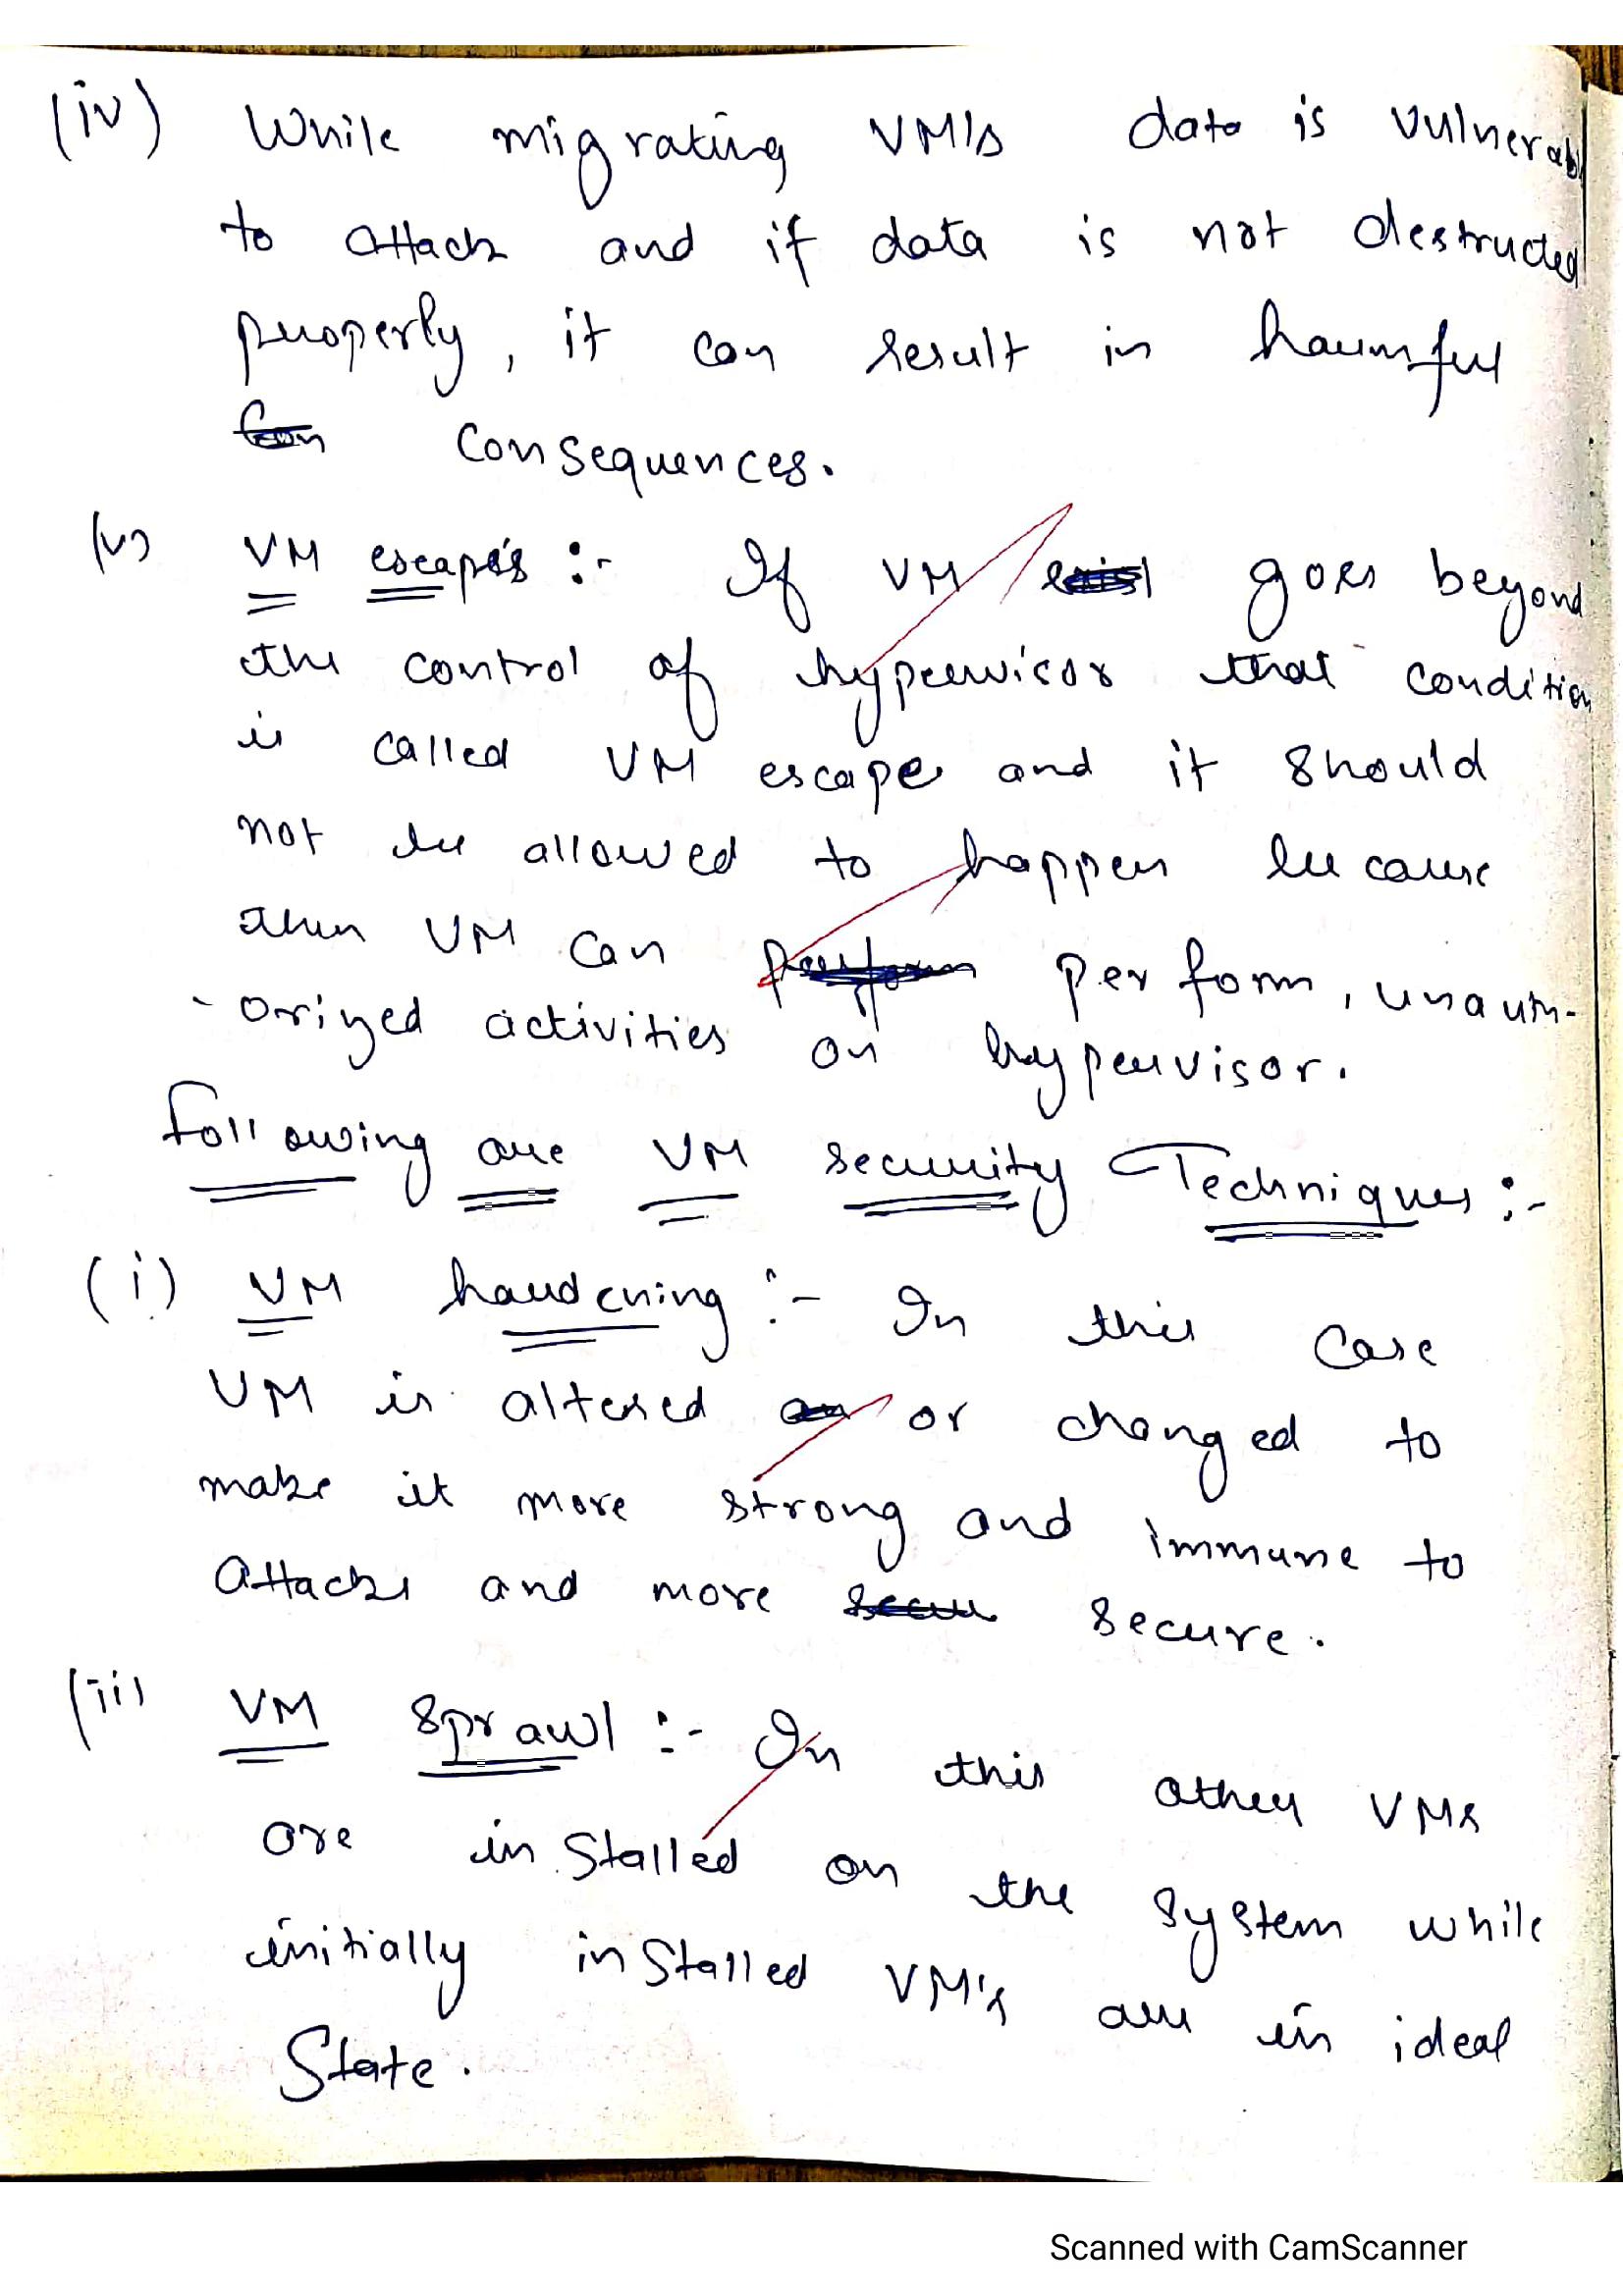 (iv) While migrating VM's data is vulnerab
to attack and if data is not destructed
properly, it can result in harmful
Con consequences.
(v) VM escapes :- If VM exist goes beyond
the control of hypervisor that condition
is called VM escape and it should
not be allowed to happen because
then VM can perform perform, unauth-
-orized activities on hypervisor.
Following are VM security Techniques :-
(i) VM hardening :- In this case
VM is altered an or changed to
make it more strong and immune to
attacks and more secu secure.
(ii) VM sprawl :- In this other VMs
are installed on the system while
initially installed VM's are in ideal
State.
Scanned with CamScanner